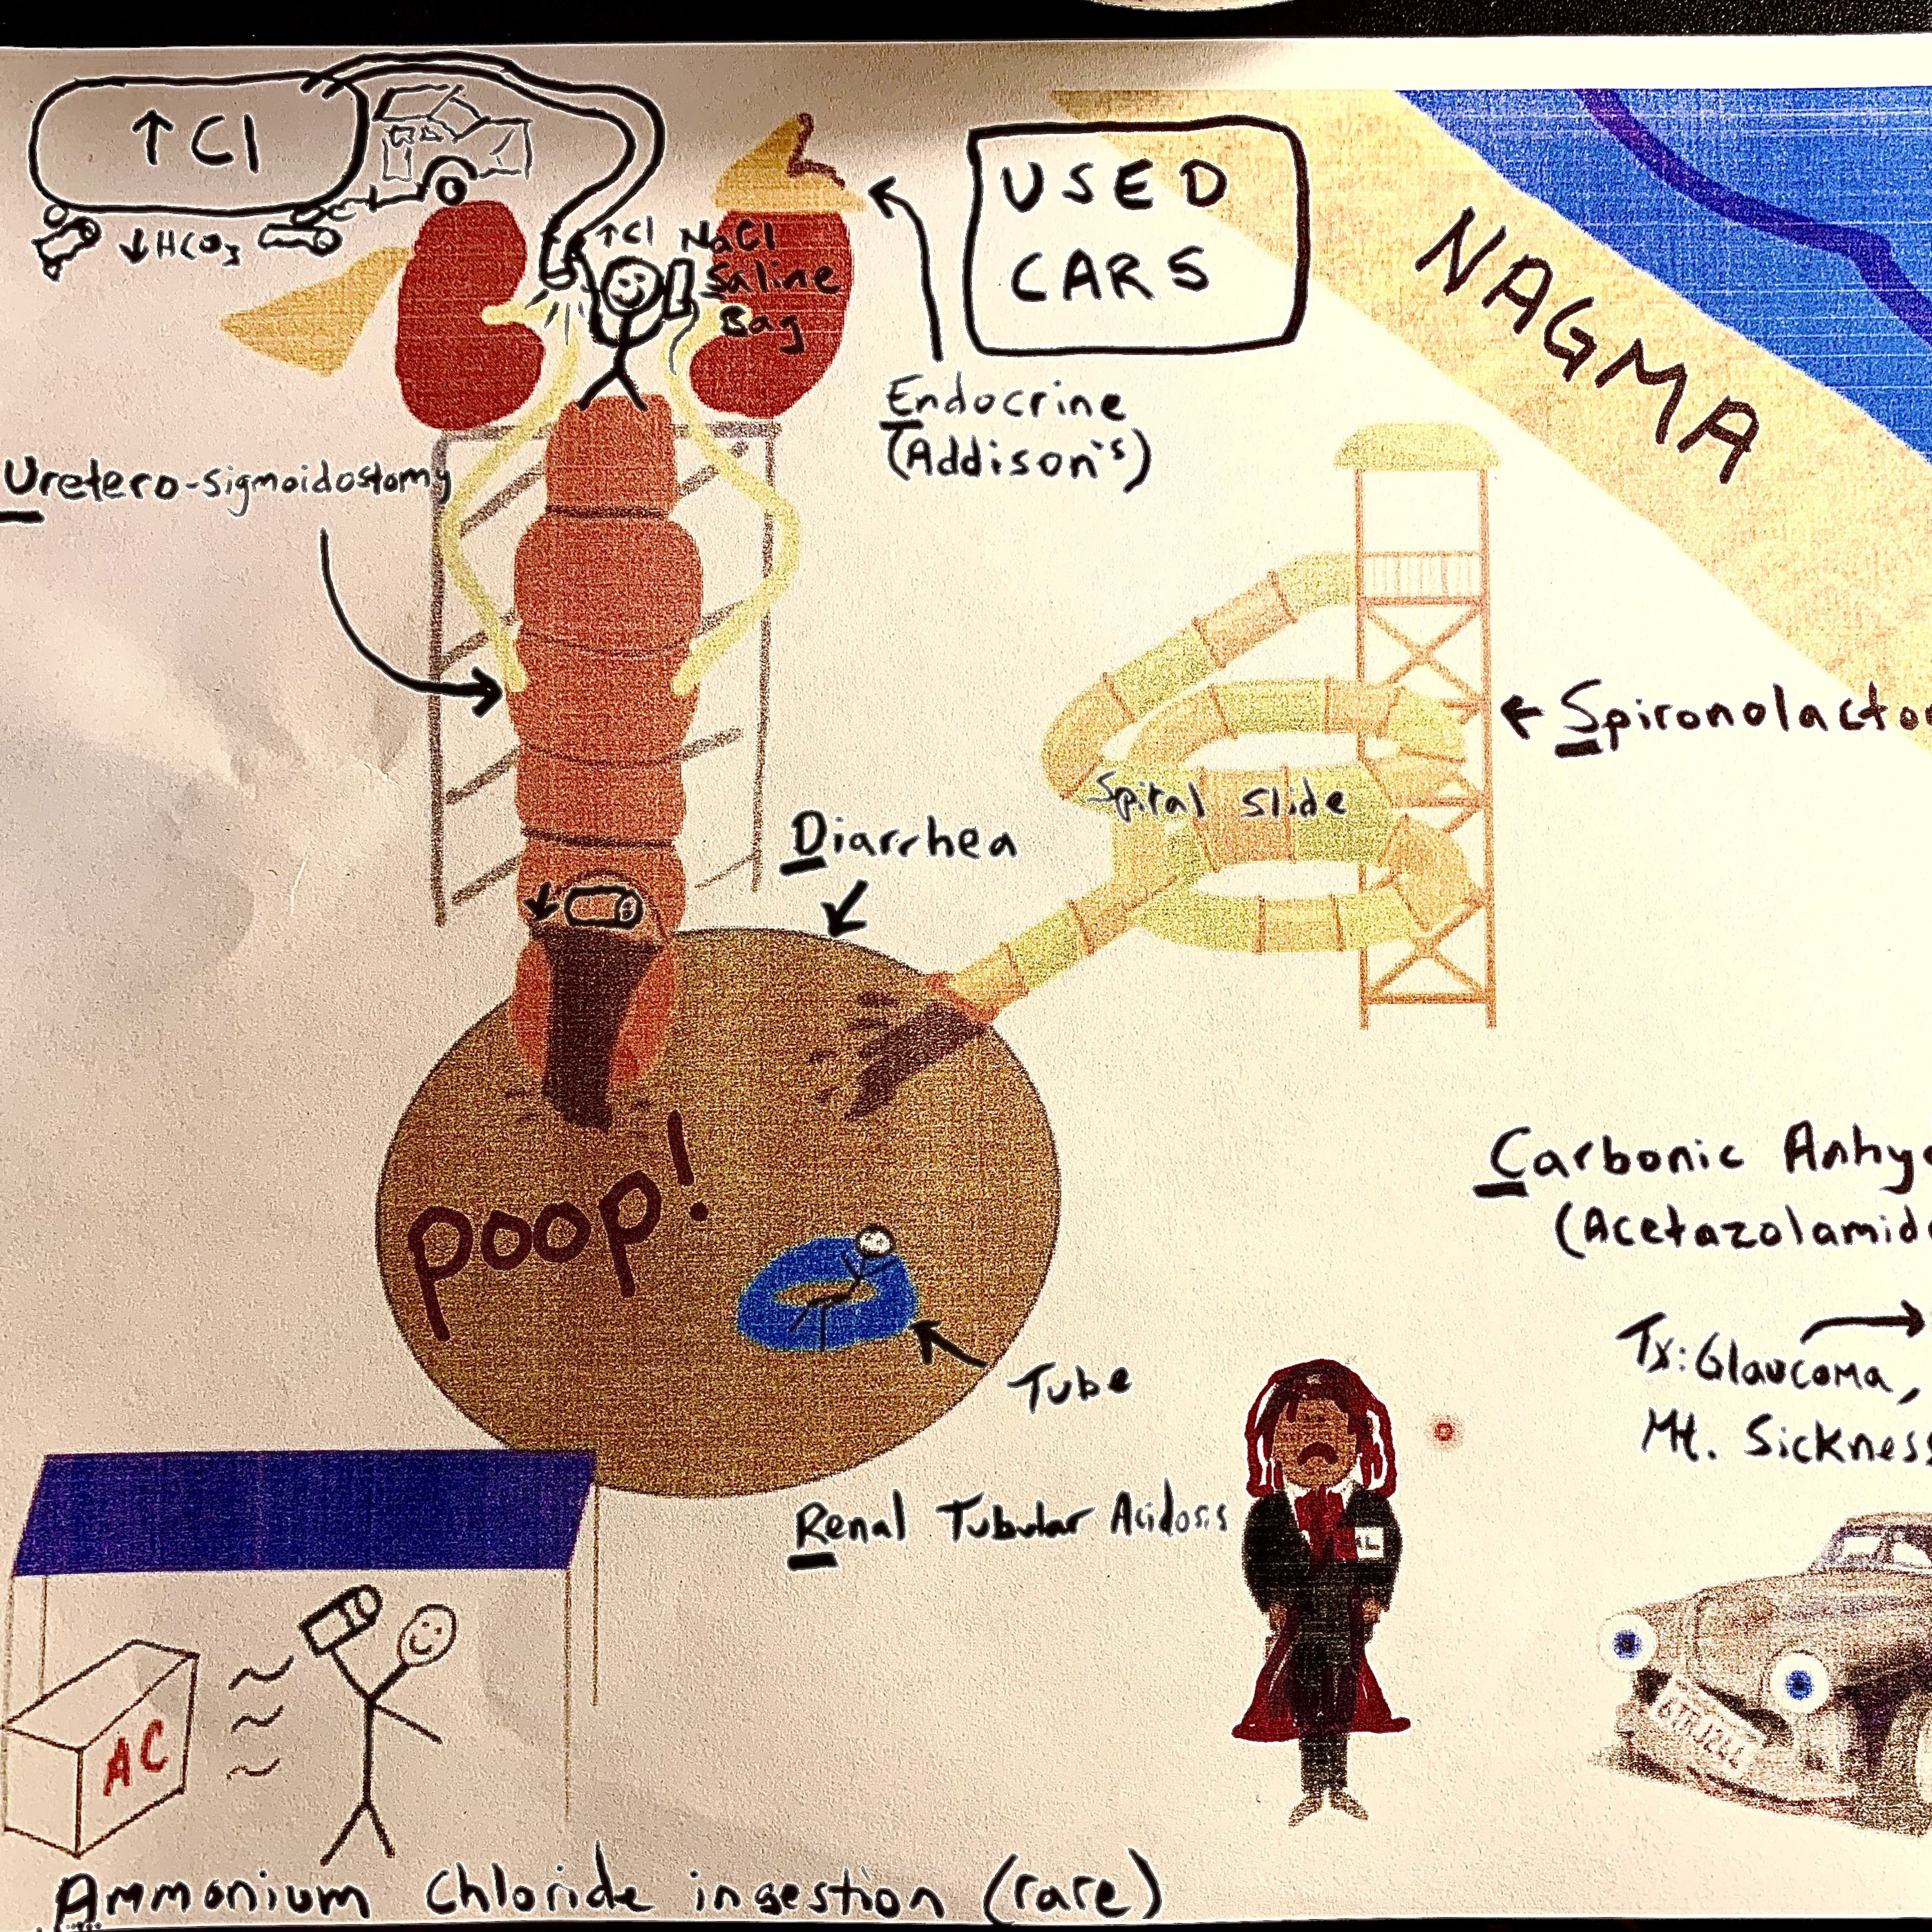 ↑Cl
↓HCO₃
↑Cl NaCl
Saline
Bag
USED
CARS
NAGMA
Endocrine
(Addison's)
Uretero-sigmoidostomy
← Spironolacto
Spiral slide
Diarrhea
Carbonic Anhy
(Acetazolamid
poop!
Tx: Glaucoma,
Mt. Sickness
Tube
Renal Tubular Acidosis
AC
Ammonium Chloride ingestion (rare)